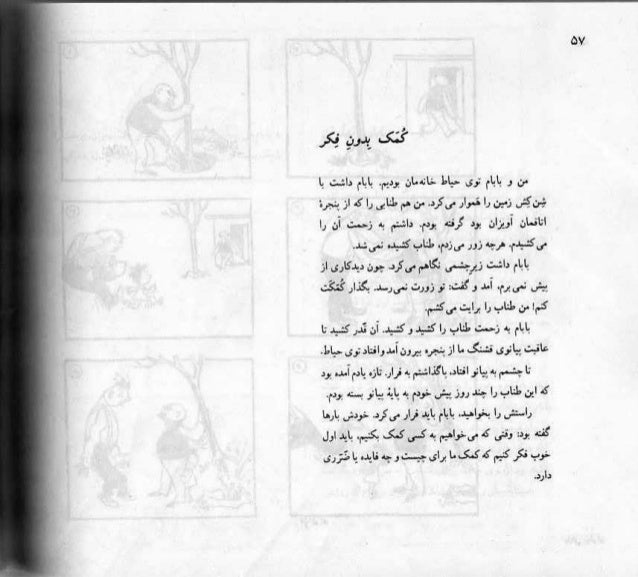 ۵۷
کُمَک بِدونِ فِکر
من و بابام توی حیاط خانه‌مان بودیم. بابام داشت با
شِن‌کِش زمین را هَموار می‌کرد. من هم طنابی را که از پنجرهٔ
اتاقمان آویزان بود گرفته بودم. داشتم به زحمت آن را
می‌کشیدم. هرچه زور می‌زدم، طناب کشیده نمی‌شد.
بابام داشت زیرِچشمی نگاهم می‌کرد. چون دیدکاری از
پیش نمی‌برم، آمد و گفت: تو زورت نمی‌رسد. بگذار کُمَکَت
کنم! من طناب را برایت می‌کشم.
بابام به زحمت طناب را کشید و کشید. آن قَدر کشید تا
عاقبت پیانوی قشنگ ما از پنجره بیرون آمد و افتاد توی حیاط.
تا چشمم به پیانو افتاد، پاگذاشتم به فرار. تازه یادم آمده بود
که این طناب را چند روز پیش خودم به پایهٔ پیانو بسته بودم.
راستش را بخواهید، بابام باید فرار می‌کرد. خودش بارها
گفته بود: وقتی که می‌خواهیم به کسی کمک بکنیم، باید اول
خوب فکر کنیم که کمک ما برای چیست و چه فایده یا ضَرَری
دارد.